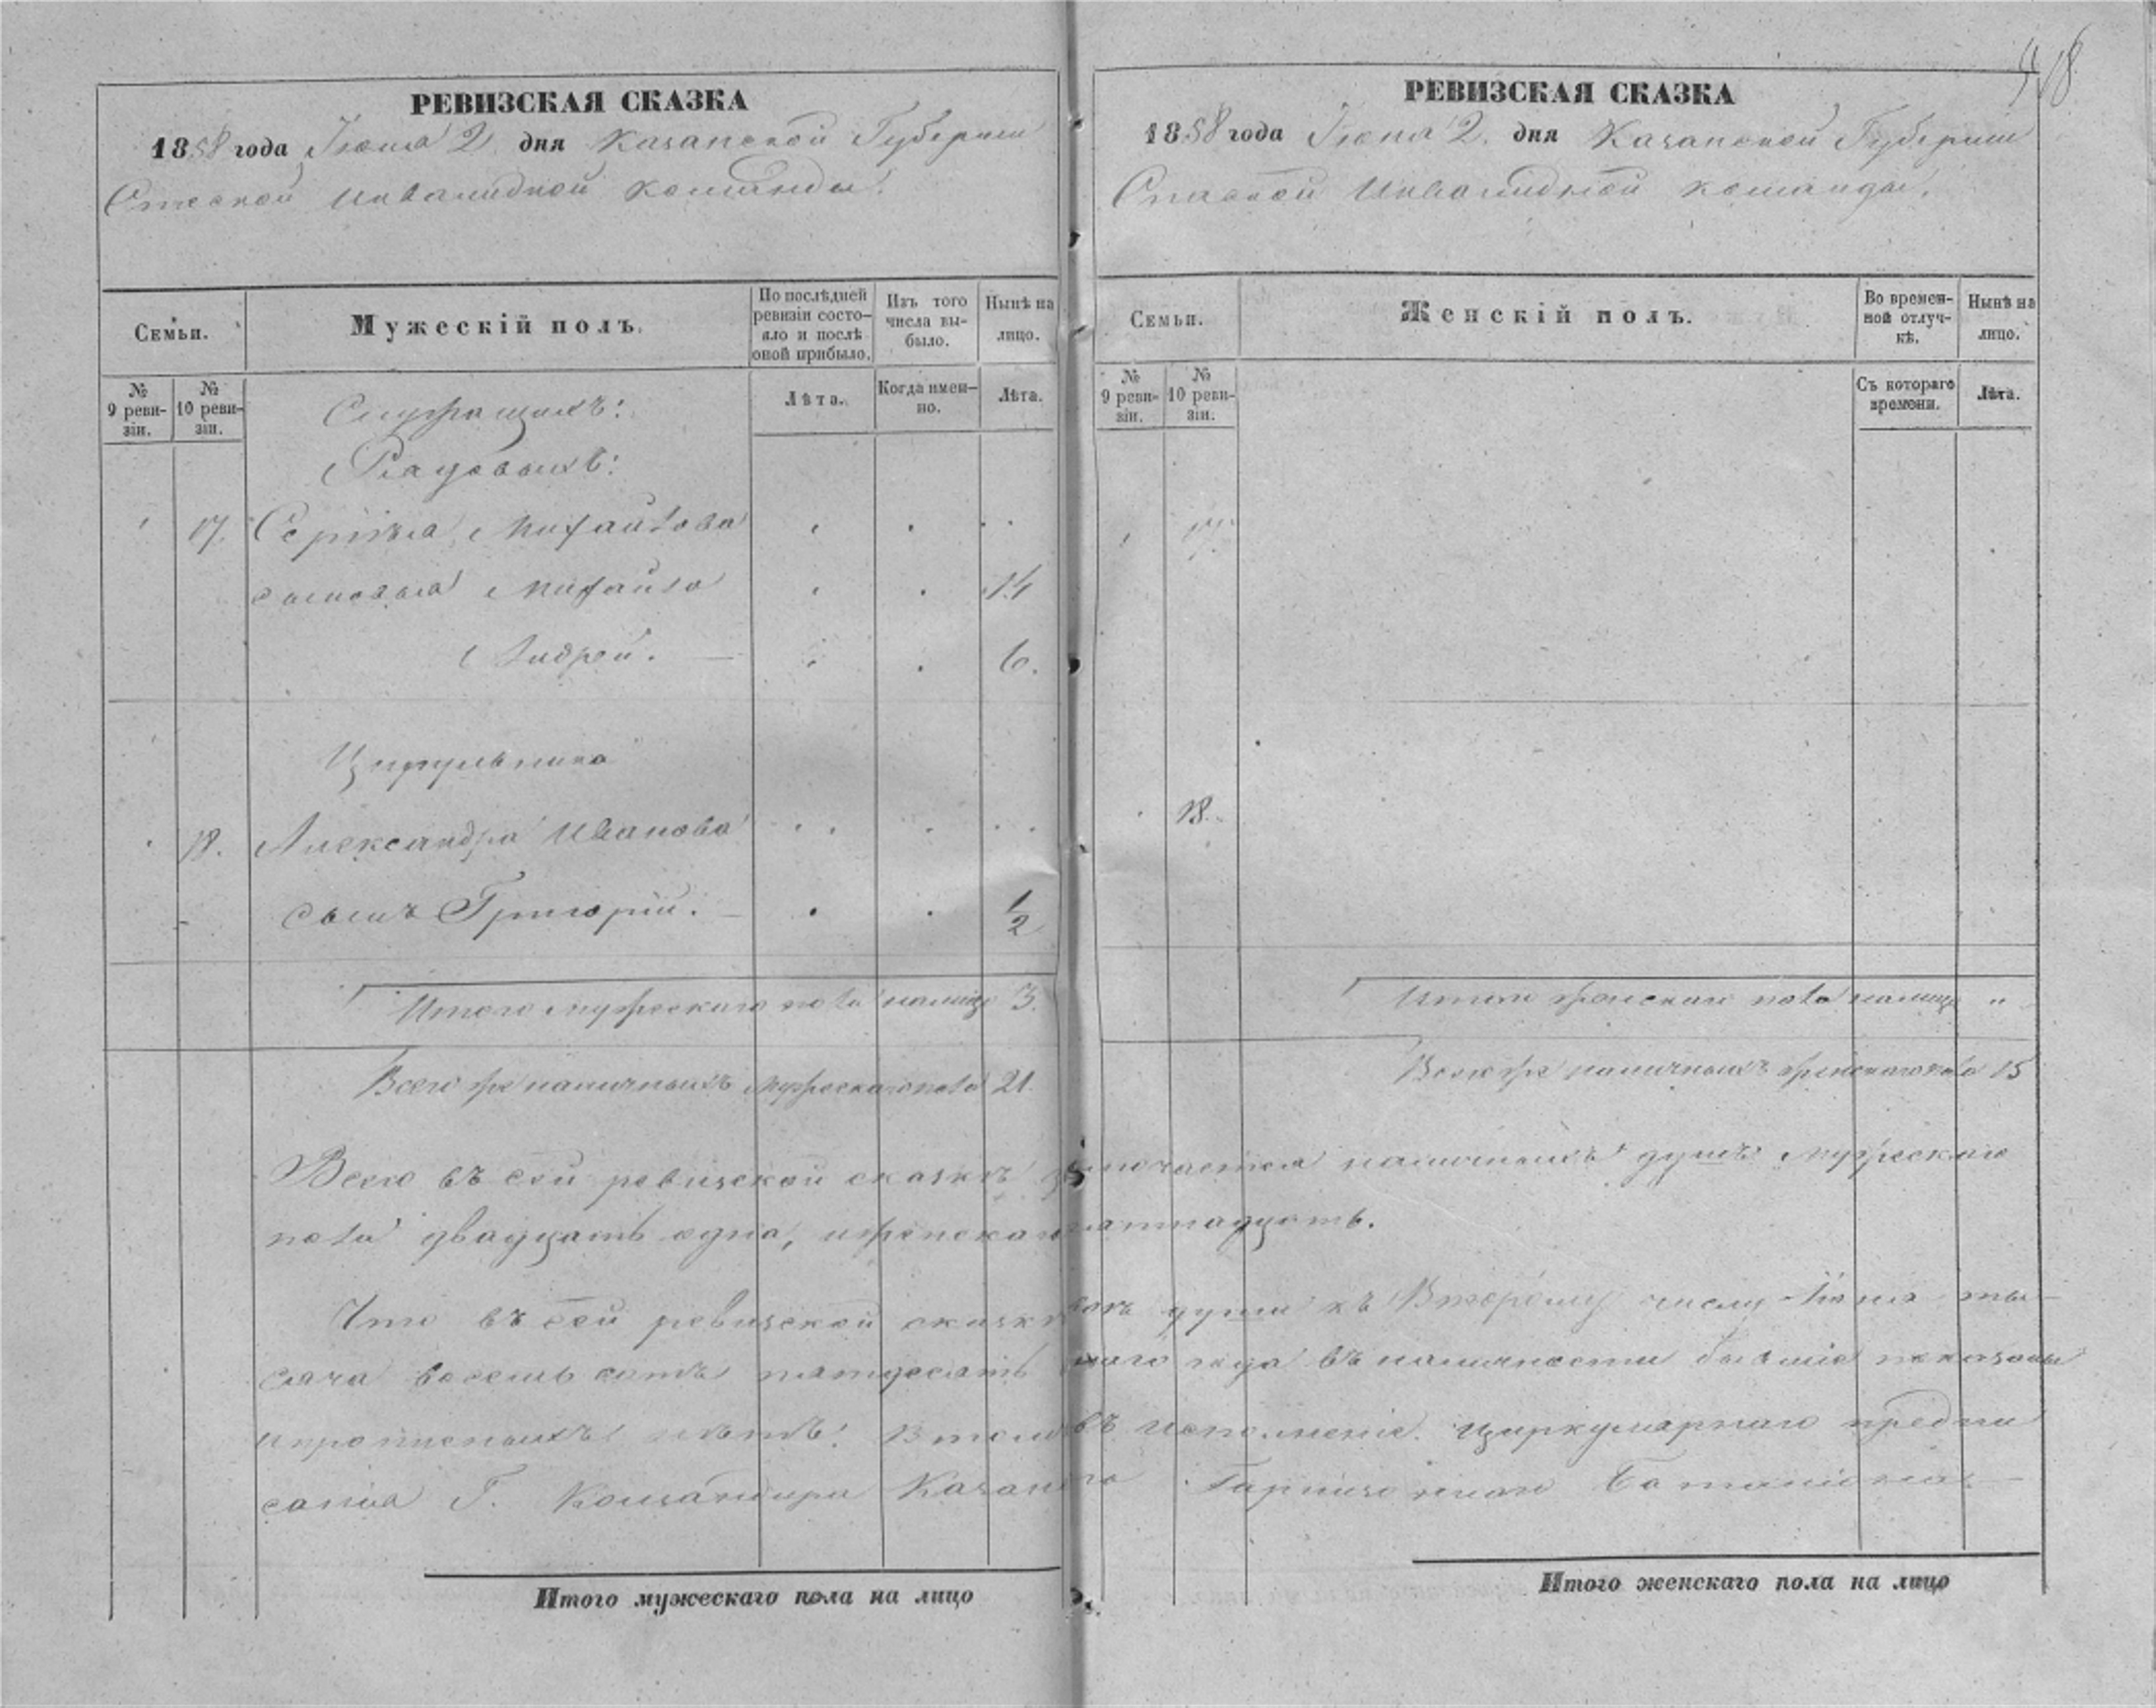 708
РЕВИЗСКАЯ СКАЗКА
1858 года Іюня 2 дня Казанской Губерніи
Спаской Инвалидной команды.
Семьи.
Мужескій полъ.
По послѣдней ревизіи состояло и послѣ оной прибыло.
Изъ того числа выбыло.
Нынѣ на лицо.
№ 9 ревизіи.
№ 10 ревизіи.
Лѣта.
Когда именно.
Лѣта.
Служащихъ:
Рядовыхъ:
17. Сергѣя Михайлова
сыновья Михайло 14
Андрей. 6.
Цирульника
18. Александра Иванова
сынъ Григорій. 1/2
Итого мужескаго пола налицо 3.
Всего же наличныхъ мужескаго пола 21.
РЕВИЗСКАЯ СКАЗКА
1858 года Іюня 2. дня Казанской Губерніи
Спаской Инвалидной команды.
Семьи.
Женскій полъ.
Во временной отлучкѣ.
Нынѣ на лицо.
№ 9 ревизіи.
№ 10 ревизіи.
Съ котораго времени.
Лѣта.
17.
18.
Итого женскаго пола налицо "
Всего же наличныхъ женскаго пола 15
Всего въ сей ревизской сказкѣ наличныхъ душъ мужескаго
пола двадцать одна, и женскаго пятнадцать.
Что въ сей ревизской сказкѣ всѣ души къ Второму числу Іюня ты-
сяча восемь сотъ пятдесятъ года въ наличности бывшіе показаны
и прописныхъ нѣтъ. Въ томъ въ исполненіе циркулярнаго предпи
санія Г. Командира Казанскаго Гарнизоннаго Баталіона
Итого мужескаго пола на лицо
Итого женскаго пола на лицо